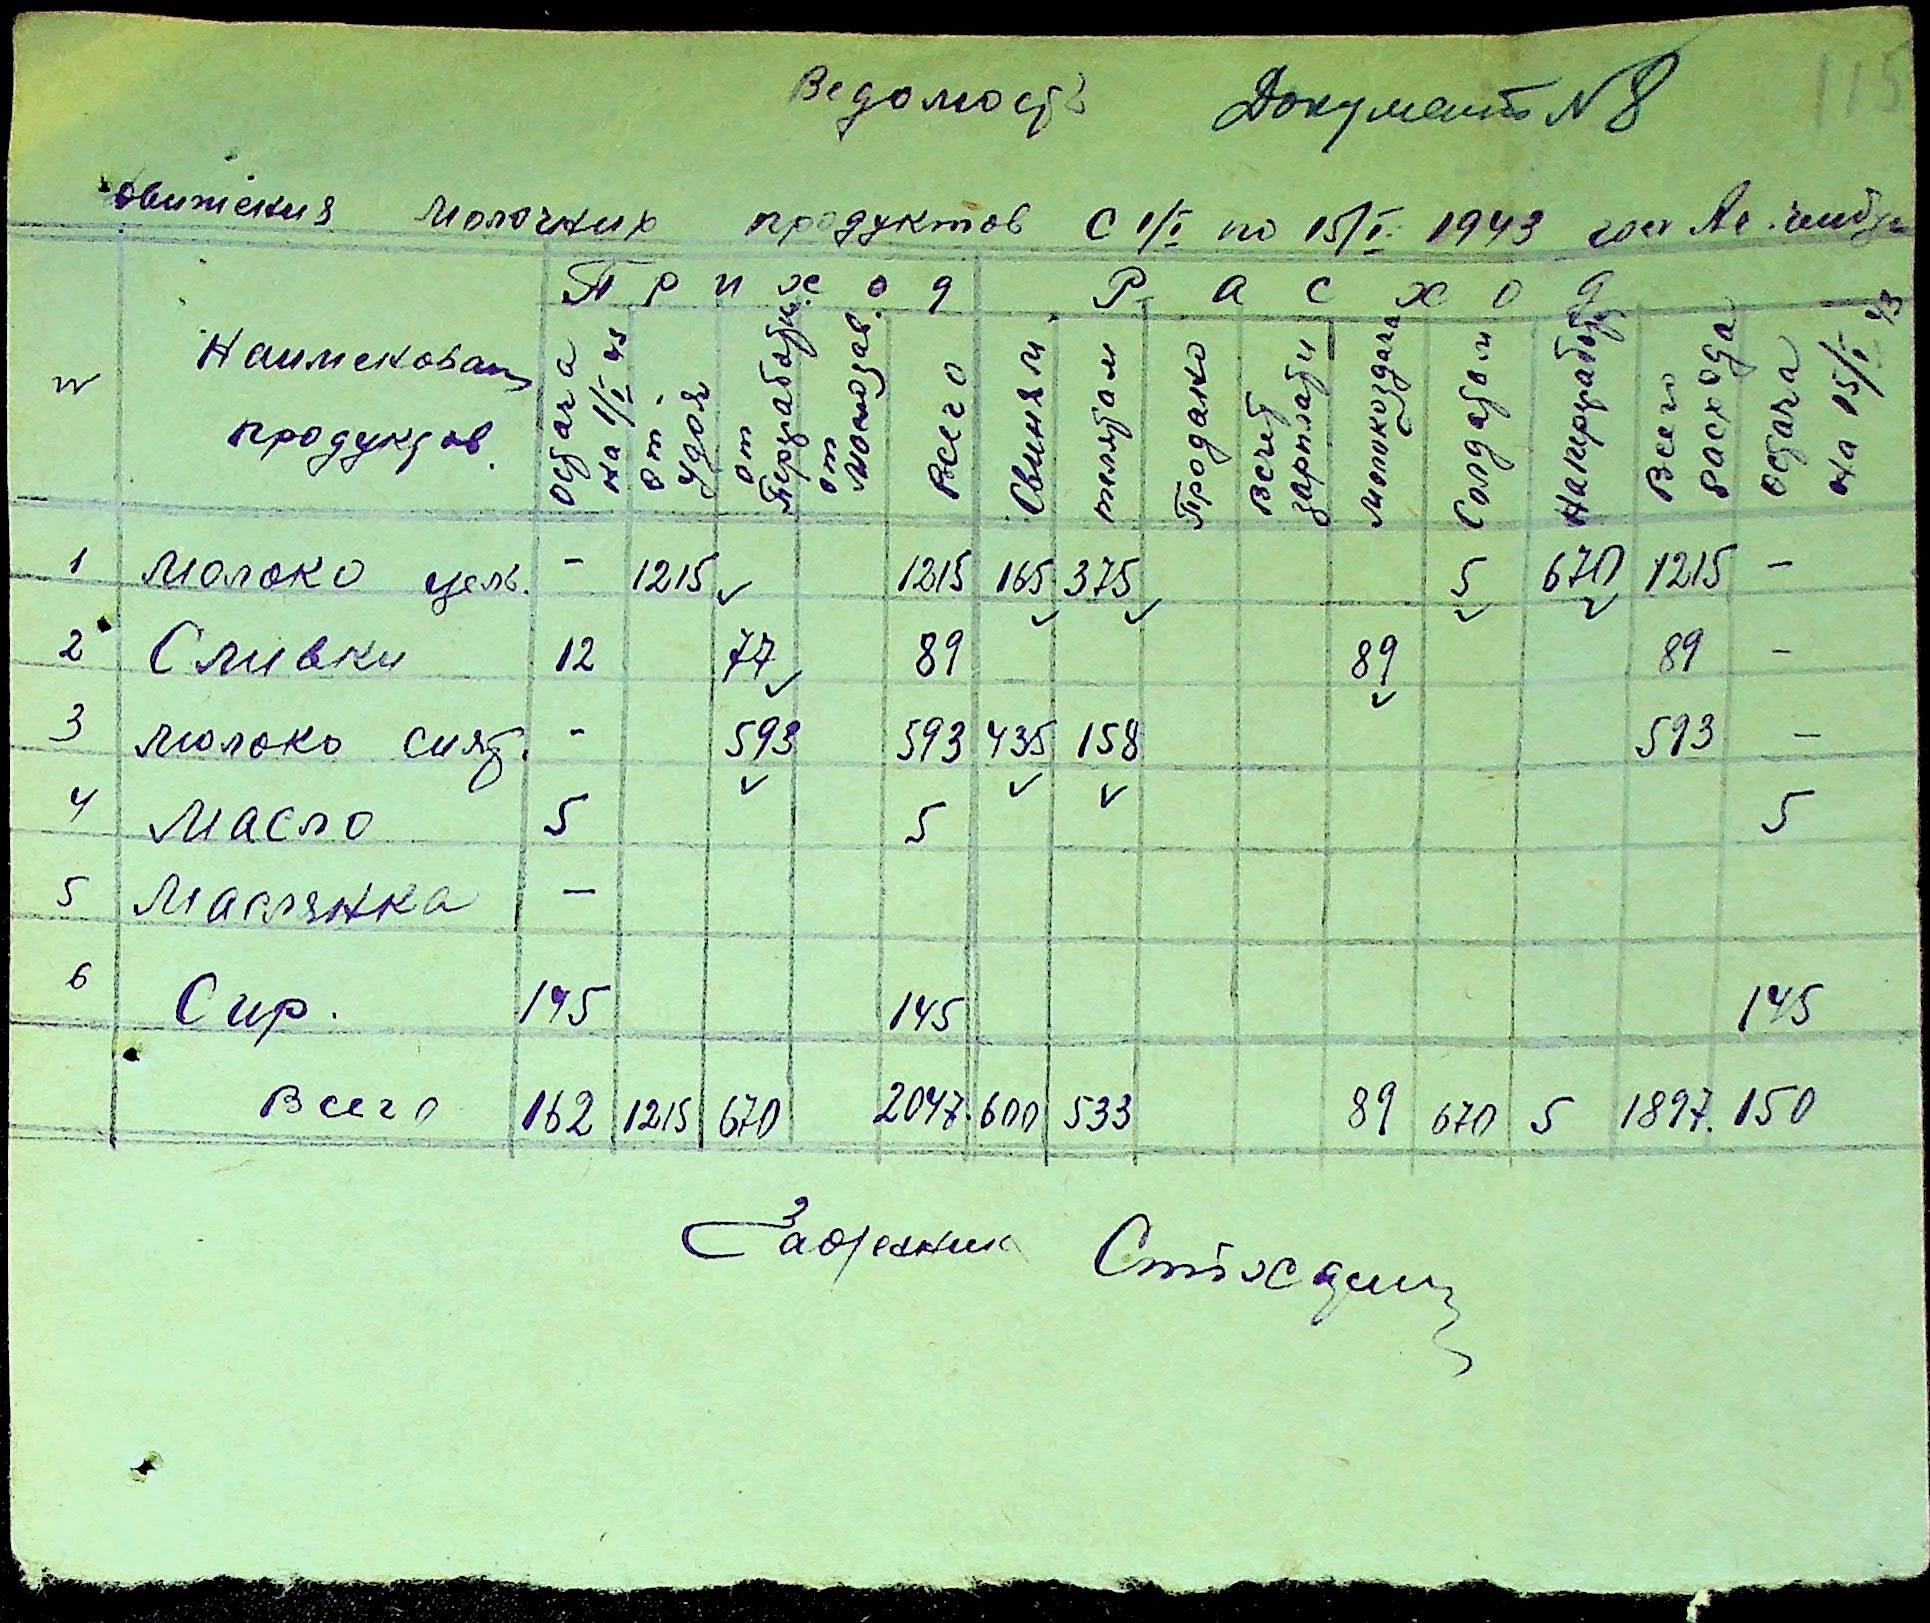 Ведомость Документ N 8
115
движения молочних продуктов с 1/I по 15/I 1943
N Наименован продуктов Приход Расход
Остача на 1/I 43 от удоя от перработки от молоздав. Всего Свиням телятам Продано Всчет зарплати молокоздача Солдатам На перработку Всего расхода Остача на 15/I 43
1 Молоко цель. - 1215 1215 165 375 5 670 1215 -
2 Сливки 12 77 89 89 89 -
3 Молоко снят. - 593 593 435 158 593 -
4 Масло 5 5 5
5 Маслянка -
6 Сир. 145 145 145
Всего 162 1215 670 2047. 600 533 89 670 5 1897. 150